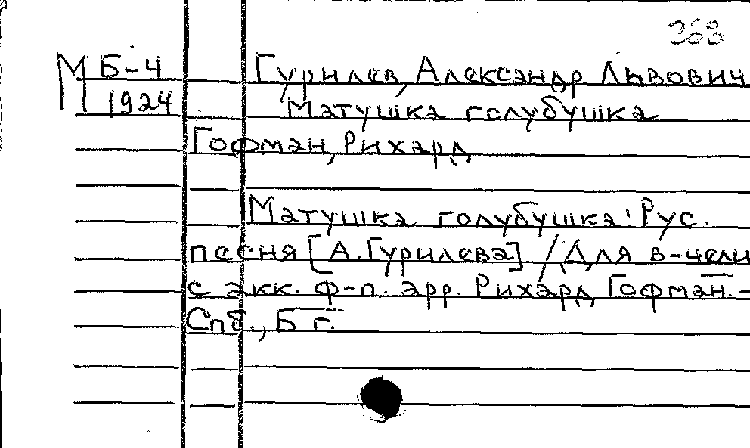 368
М Б-4 Гурилев, Александр Львович
1924 Матушка голубушка
Гофман, Рихард
Матушка голубушка: Рус.
песня [А. Гурилева] / Для в-чели
с акк. ф-п. арр. Рихард Гофман.-
Спб., Б г.